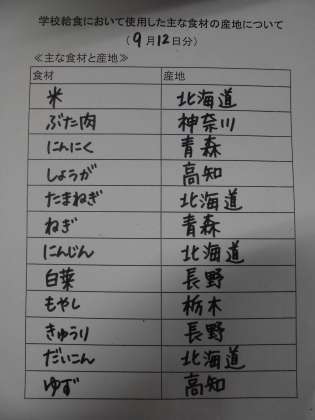 学校給食において使用した主な食材の産地について
(9月12日分)
≪主な食材と産地≫
食材 産地
米 北海道
ぶた肉 神奈川
にんにく 青森
しょうが 高知
たまねぎ 北海道
ねぎ 青森
にんじん 北海道
白菜 長野
もやし 栃木
きゅうり 長野
だいこん 北海道
ゆず 高知